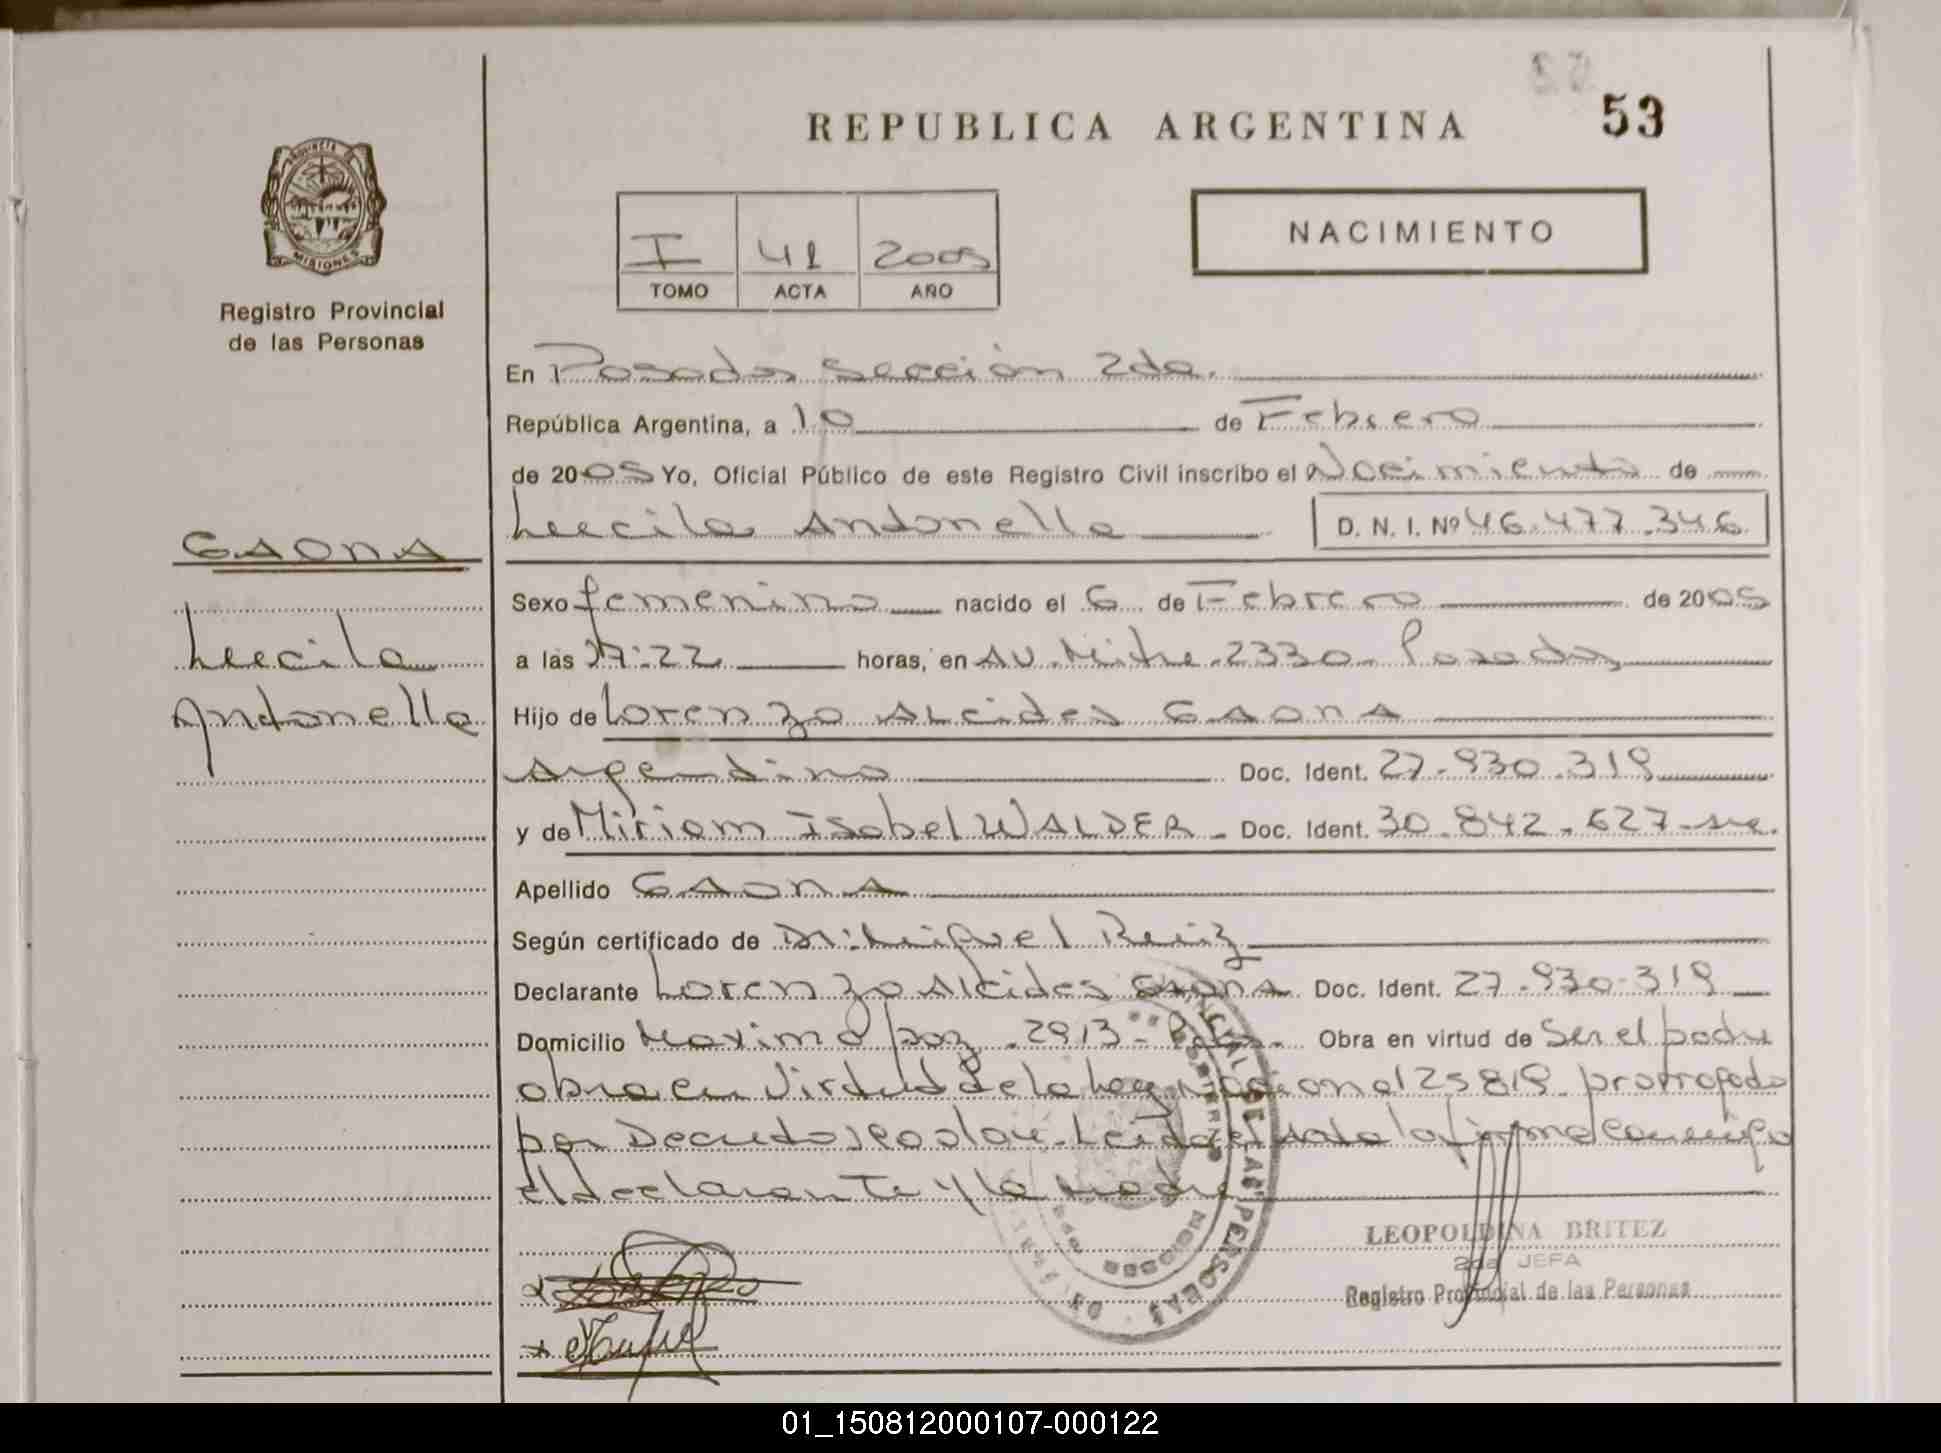 53
REPUBLICA ARGENTINA
PROVINCIA DE
MISIONES
Registro Provincial
de las Personas
I 41 2005
TOMO ACTA AÑO
NACIMIENTO
En Posadas Sección 2da.
República Argentina, a 10 de Febrero
de 2005 Yo, Oficial Público de este Registro Civil inscribo el Nacimiento de
Luecila Antonella D. N. I. Nº 46.477.346
GAONA
Luecila
Antonella
Sexo femenino nacido el 6 de Febrero de 2005
a las 17:22 horas, en AV. Mitre 2330 Posadas
Hijo de Lorenzo Alcides GAONA
Argentino Doc. Ident. 27.930.319
y de Miriam Isabel WALDER - Doc. Ident. 30.842.627
Apellido GAONA
Según certificado de Dr. Miguel Ruiz
Declarante Lorenzo Alcides GAONA Doc. Ident. 27.930.319
Domicilio Maximo paz 2913 Obra en virtud de Ser el padre
obra en Virtud de la Ley Nacional 25819 prorrogada
por Decreto Leida el acta la firma conmigo
el declarante y la madre
LEOPOLDINA BRITEZ
2da JEFA
Registro Provincial de las Personas
01_150812000107-000122